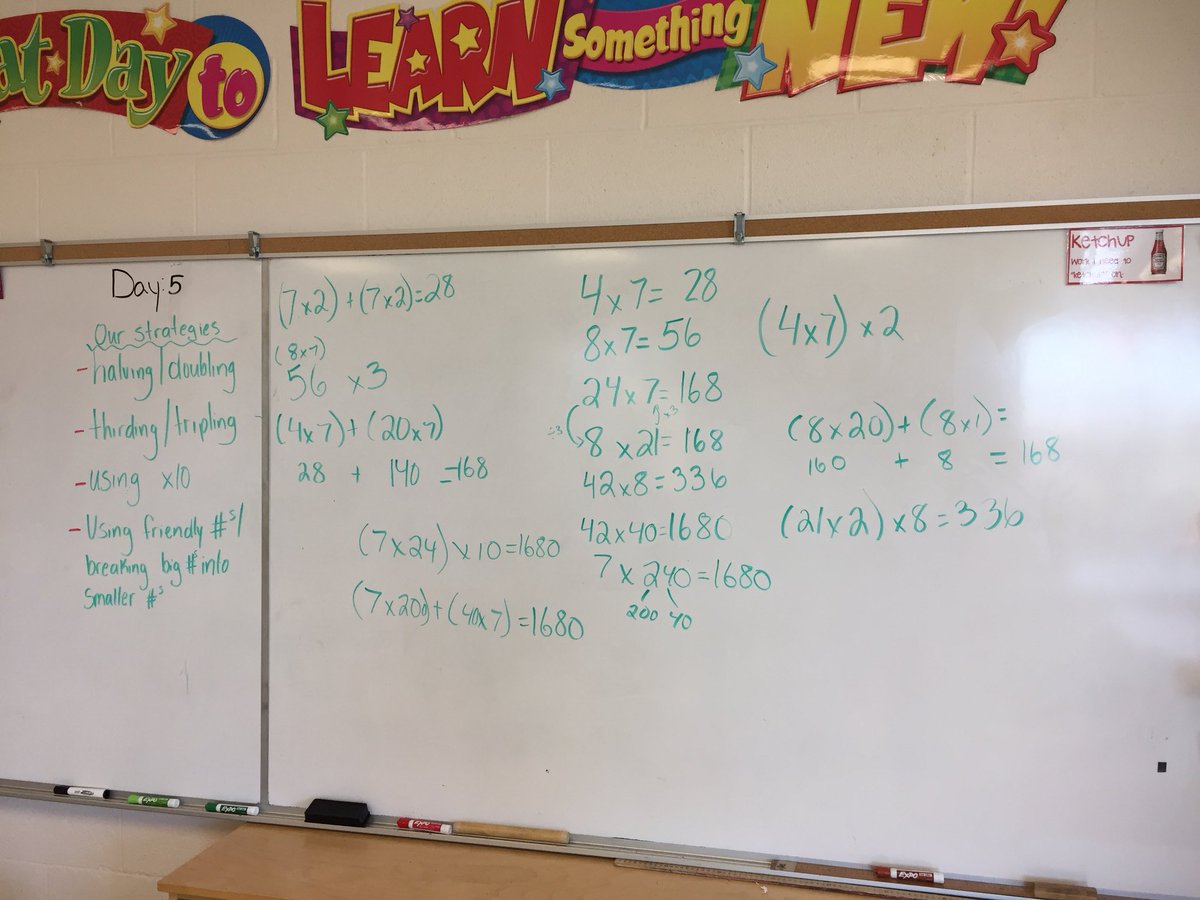 at Day to LEARN Something NEW!
Ketchup
Work I need to
Day: 5
Our strategies
- halving/doubling
- thirding/tripling
- using x10
- Using friendly #s/
breaking big #s into
smaller #s
(7x2) + (7x2) = 28
(8x7)
56 x3
(4x7) + (20x7)
28 + 140 = 168
(7x24) x 10 = 1680
(7x200) + (40x7) = 1680
4 x 7 = 28
8 x 7 = 56
24 x 7 = 168
÷3 x3
8 x 21 = 168
42 x 8 = 336
42 x 40 = 1680
7 x 240 = 1680
200 40
(4x7) x 2
(8x20) + (8x1) =
160 + 8 = 168
(21x2) x 8 = 336
EXPO
EXPO
EXPO
EXPO